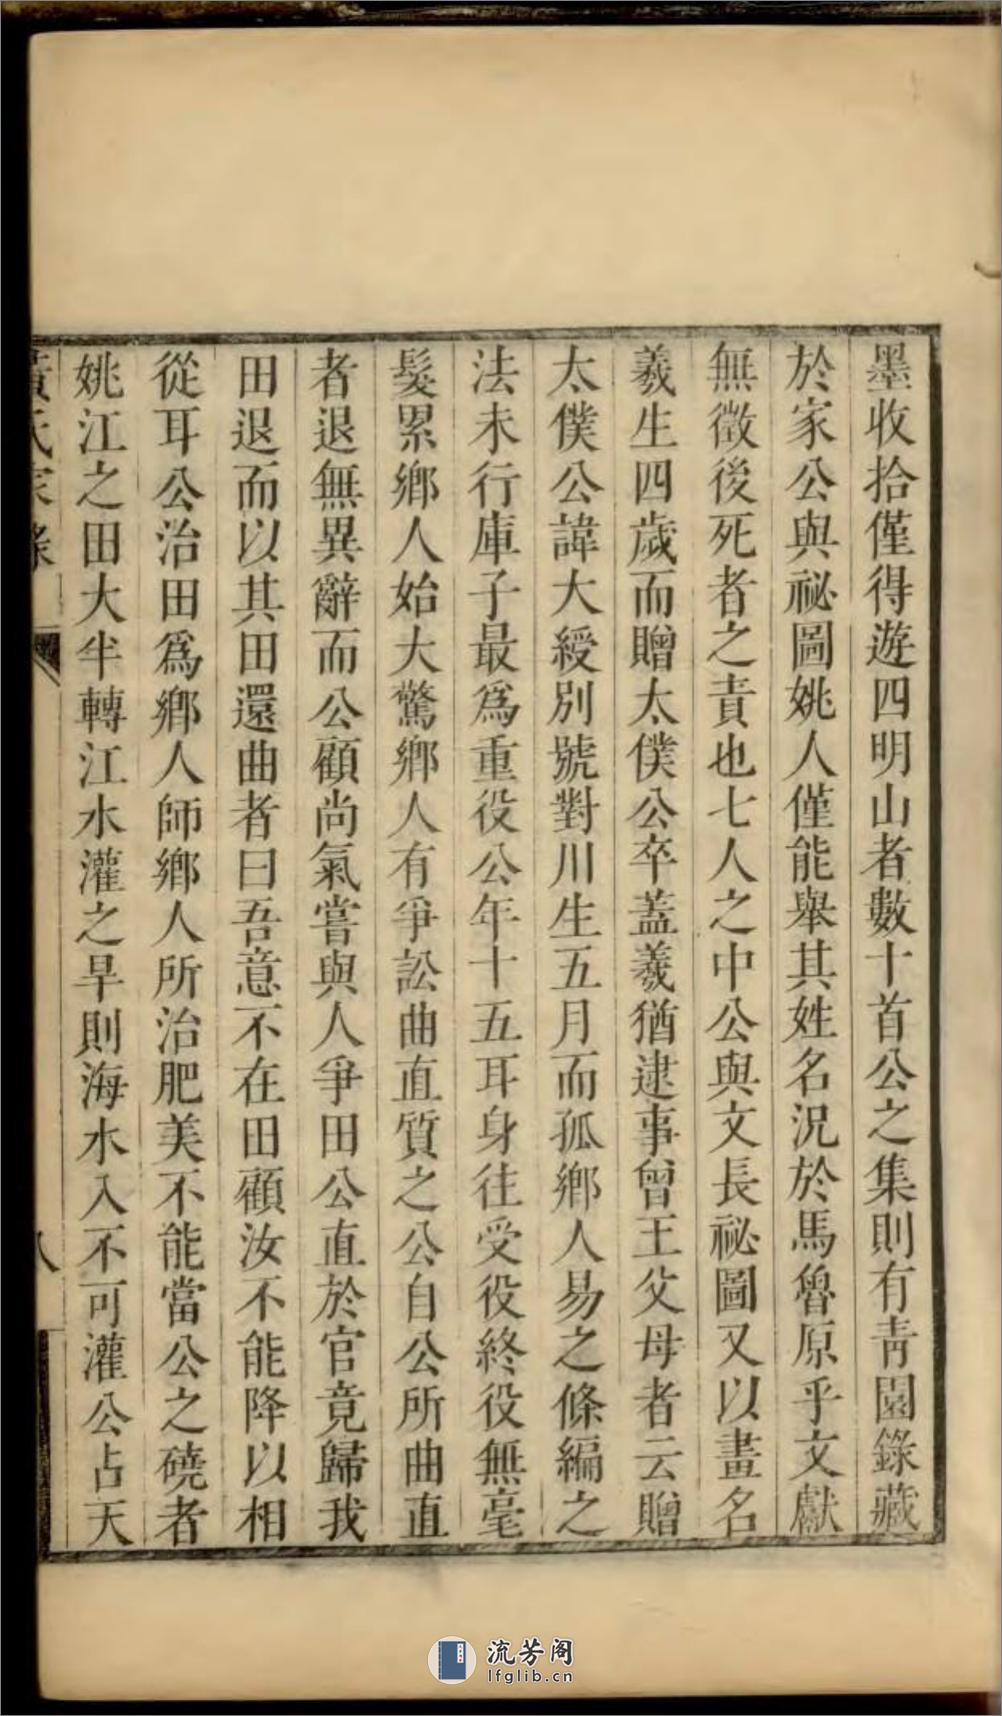 墨收拾僅得遊四明山者數十首公之集則有靑園錄藏
於家公與祕圖姚人僅能舉其姓名況於馬魯原乎文獻
無徵後死者之責也七人之中公與文長祕圖又以畫名
羲生四歲而贈太僕公卒蓋羲猶逮事曾王父母者云贈
太僕公諱大綬別號對川生五月而孤鄉人易之條編之
法未行庫子最爲重役公年十五耳身往受役終役無毫
髮累鄉人始大驚鄉人有爭訟曲直質之公自公所曲直
者退無異辭而公顧尚氣嘗與人爭田公直於官竟歸我
田退而以其田還曲者曰吾意不在田顧汝不能降以相
從耳公治田爲鄉人師鄉人所治肥美不能當公之磽者
姚江之田大半轉江水灌之旱則海水入不可灌公占天
黃氏家錄
八
流芳阁
lfglib.cn